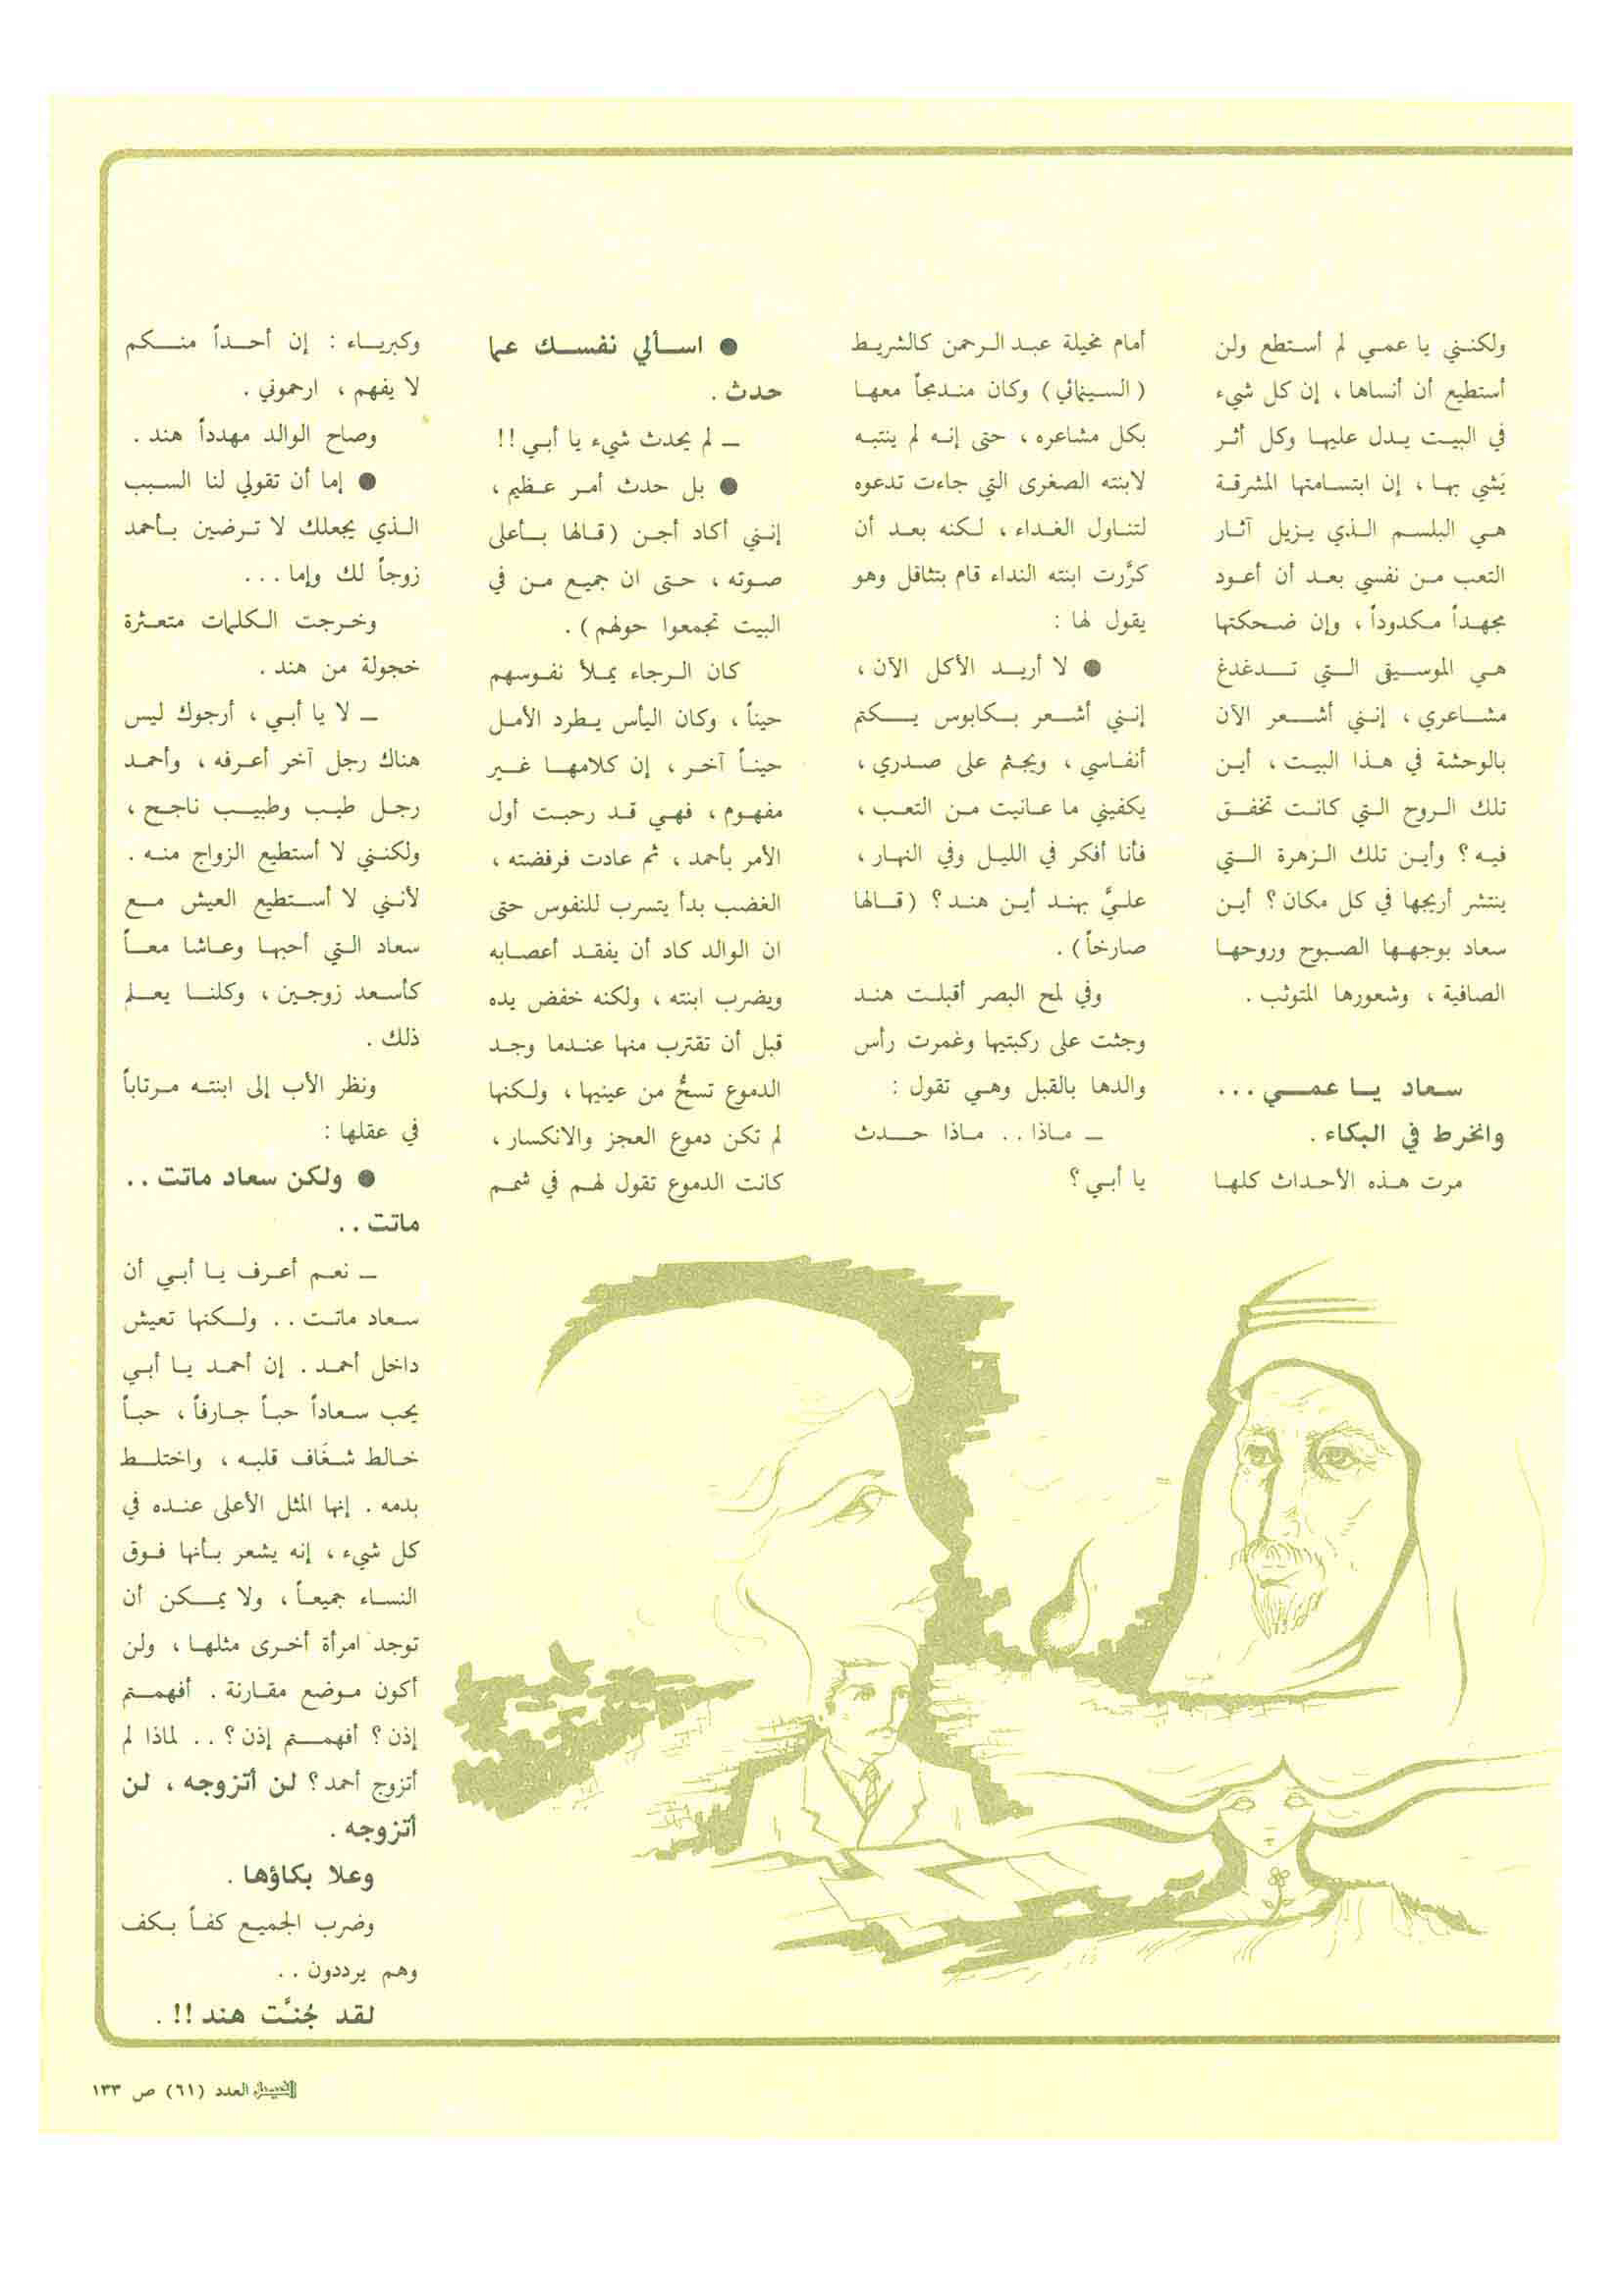 ولكنني يا عمي لم أستطع ولن
أستطيع أن أنساها ، إن كل شيء
في البيت يدل عليها وكل أثر
يَشي بها ، إن ابتسامتها المشرقة
هي البلسم الذي يزيل آثار
التعب من نفسي بعد أن أعود
مجهداً مكدوداً ، وإن ضحكتها
هي الموسيقى التي تدغدغ
مشاعري ، إنني أشعر الآن
بالوحشة في هذا البيت ، أين
تلك الروح التي كانت تخفق
فيه ؟ وأين تلك الزهرة التي
ينتشر أريجها في كل مكان ؟ أين
سعاد بوجهها الصبوح وروحها
الصافية ، وشعورها المتوثب .
سعاد يا عمي ...
وانخرط في البكاء .
مرت هذه الأحداث كلها
أمام مخيلة عبد الرحمن كالشريط
( السينمائي ) وكان مندمجاً معها
بكل مشاعره ، حتى إنه لم ينتبه
لابنته الصغرى التي جاءت تدعوه
لتناول الغداء ، لكنه بعد أن
كرَّرت ابنته النداء قام بتثاقل وهو
يقول لها :
● لا أريد الأكل الآن ،
إنني أشعر بكابوس يكتم
أنفاسي ، ويجثم على صدري ،
يكفيني ما عانيت من التعب ،
فأنا أفكر في الليل وفي النهار ،
عليَّ بهند أين هند ؟ ( قالها
صارخاً ) .
وفي لمح البصر أقبلت هند
وجثت على ركبتيها وغمرت رأس
والدها بالقبل وهي تقول :
ـ ماذا .. ماذا حدث
يا أبي ؟
● اسألي نفسك عما
حدث .
ـ لم يحدث شيء يا أبي !!
● بل حدث أمر عظيم ،
إنني أكاد أجن ( قالها بأعلى
صوته ، حتى ان جميع من في
البيت تجمعوا حولهم ) .
كان الرجاء يملأ نفوسهم
حيناً ، وكان اليأس يطرد الأمل
حيناً آخر ، إن كلامها غير
مفهوم ، فهي قد رحبت أول
الأمر بأحمد ، ثم عادت فرفضته ،
الغضب بدأ يتسرب للنفوس حتى
ان الوالد كاد أن يفقد أعصابه
ويضرب ابنته ، ولكنه خفض يده
قبل أن تقترب منها عندما وجد
الدموع تسحُّ من عينيها ، ولكنها
لم تكن دموع العجز والانكسار ،
كانت الدموع تقول لهم في شمم
وكبرياء : إن أحداً منكم
لا يفهم ، ارحموني .
وصاح الوالد مهدداً هند .
● إما أن تقولي لنا السبب
الذي يجعلك لا ترضين بأحمد
زوجاً لك وإما ...
وخرجت الكلمات متعثرة
خجولة من هند .
ـ لا يا أبي ، أرجوك ليس
هناك رجل آخر أعرفه ، وأحمد
رجل طيب وطبيب ناجح ،
ولكنني لا أستطيع الزواج منه .
لأنني لا أستطيع العيش مع
سعاد التي أحبها وعاشا معاً
كأسعد زوجين ، وكلنا يعلم
ذلك .
ونظر الأب إلى ابنته مرتاباً
في عقلها :
● ولكن سعاد ماتت ..
ماتت ..
ـ نعم أعرف يا أبي أن
سعاد ماتت .. ولكنها تعيش
داخل أحمد . إن أحمد يا أبي
يحب سعاداً حباً جارفاً ، حباً
خالط شغَاف قلبه ، واختلط
بدمه . إنها المثل الأعلى عنده في
كل شيء ، إنه يشعر بأنها فوق
النساء جميعاً ، ولا يمكن أن
توجد امرأة أخرى مثلها ، ولن
أكون موضع مقارنة . أفهمتم
إذن ؟ أفهمتم إذن ؟ .. لماذا لم
أتزوج أحمد ؟ لن أتزوجه ، لن
أتزوجه .
وعلا بكاؤها .
وضرب الجميع كفاً بكف
وهم يرددون ..
لقد جُنَّت هند !! .
الفيصل العدد (٦١) ص ١٣٣